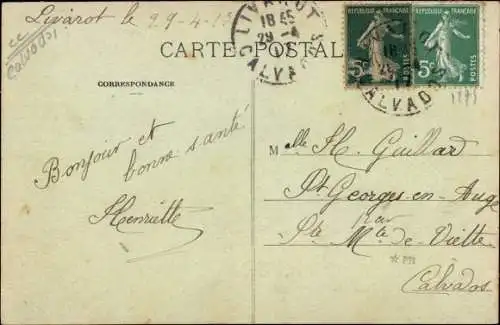 Livarot le 29-4-1
cc
Calvados
CARTE POSTALE
LIVAROT
18 45
29 -4
CALVADOS
REPUBLIQUE FRANÇAISE
5c
POSTES
REPUBLIQUE FRANÇAISE
5c
POSTES
CALVADOS
CORRESPONDANCE
Bonjour et
bonne santé
Henriette
Melle H. Guillard
St Georges-en-Auge
par
Ste Mte de Viette
Calvados